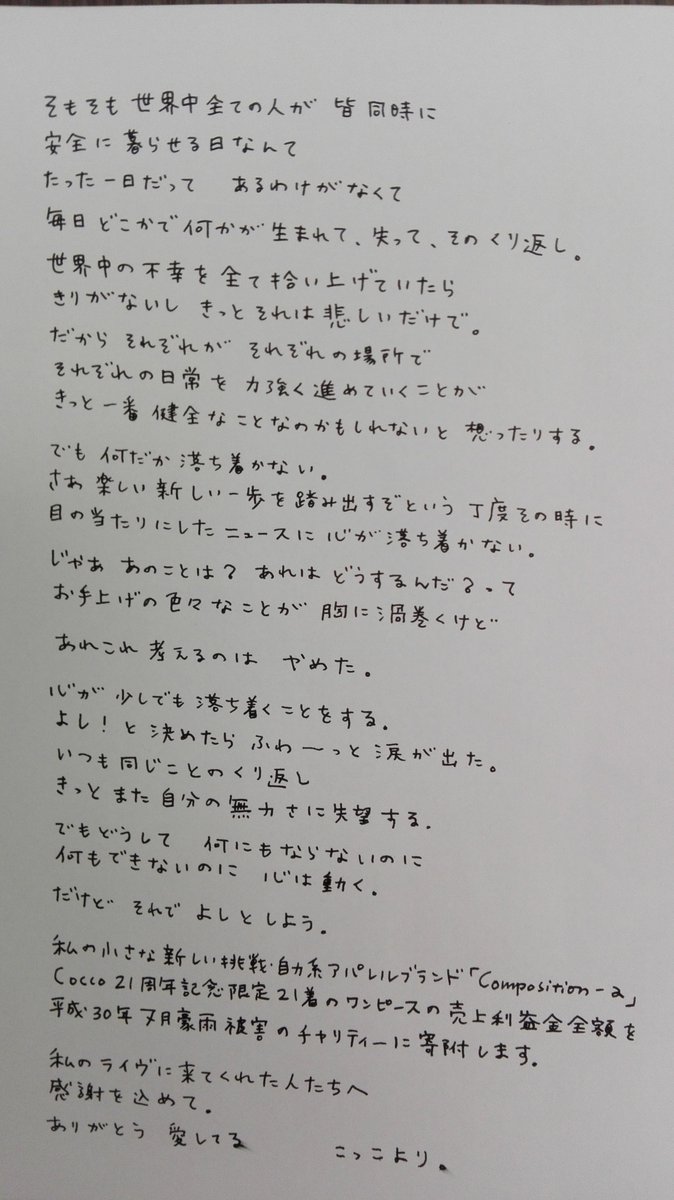 そもそも 世界中全ての人が 皆 同時に
安全に 暮らせる日なんて
たった一日だって あるわけがなくて
毎日 どこかで 何かが 生まれて、失って、その くり返し。
世界中の 不幸を 全て 拾い上げていたら
きりがないし きっと それは 悲しいだけで。
だから それぞれが それぞれの場所で
それぞれの日常を 力強く進めていくことが
きっと一番 健全なことなのかもしれないと 想ったりする。
でも 何だか 落ち着かない。
さあ 楽しい 新しい一歩を踏み出すぞという 丁度その時に
目の当たりにした ニュースに 心が 落ち着かない。
じゃあ あのことは？ あれは どうするんだ？って
お手上げの 色々なことが 胸に 渦巻くけど
あれこれ 考えるのは やめた。
心が 少しでも 落ち着くことをする。
よし！と 決めたら ふわ〜っと 涙が出た。
いつも同じことの くり返し
きっと また 自分の 無力さに 失望する。
でもどうして 何にもならないのに
何もできないのに 心は 動く。
だけど それで よしと しよう。
私の小さな 新しい 挑戦・自力系アパレルブランド「Composition-a」
Cocco 21周年記念限定21着のワンピースの売上利益金全額を
平成30年7月豪雨被害のチャリティーに寄附します。
私の ライヴに 来てくれた人たちへ
感謝を込めて。
ありがとう 愛してる
こっこより。